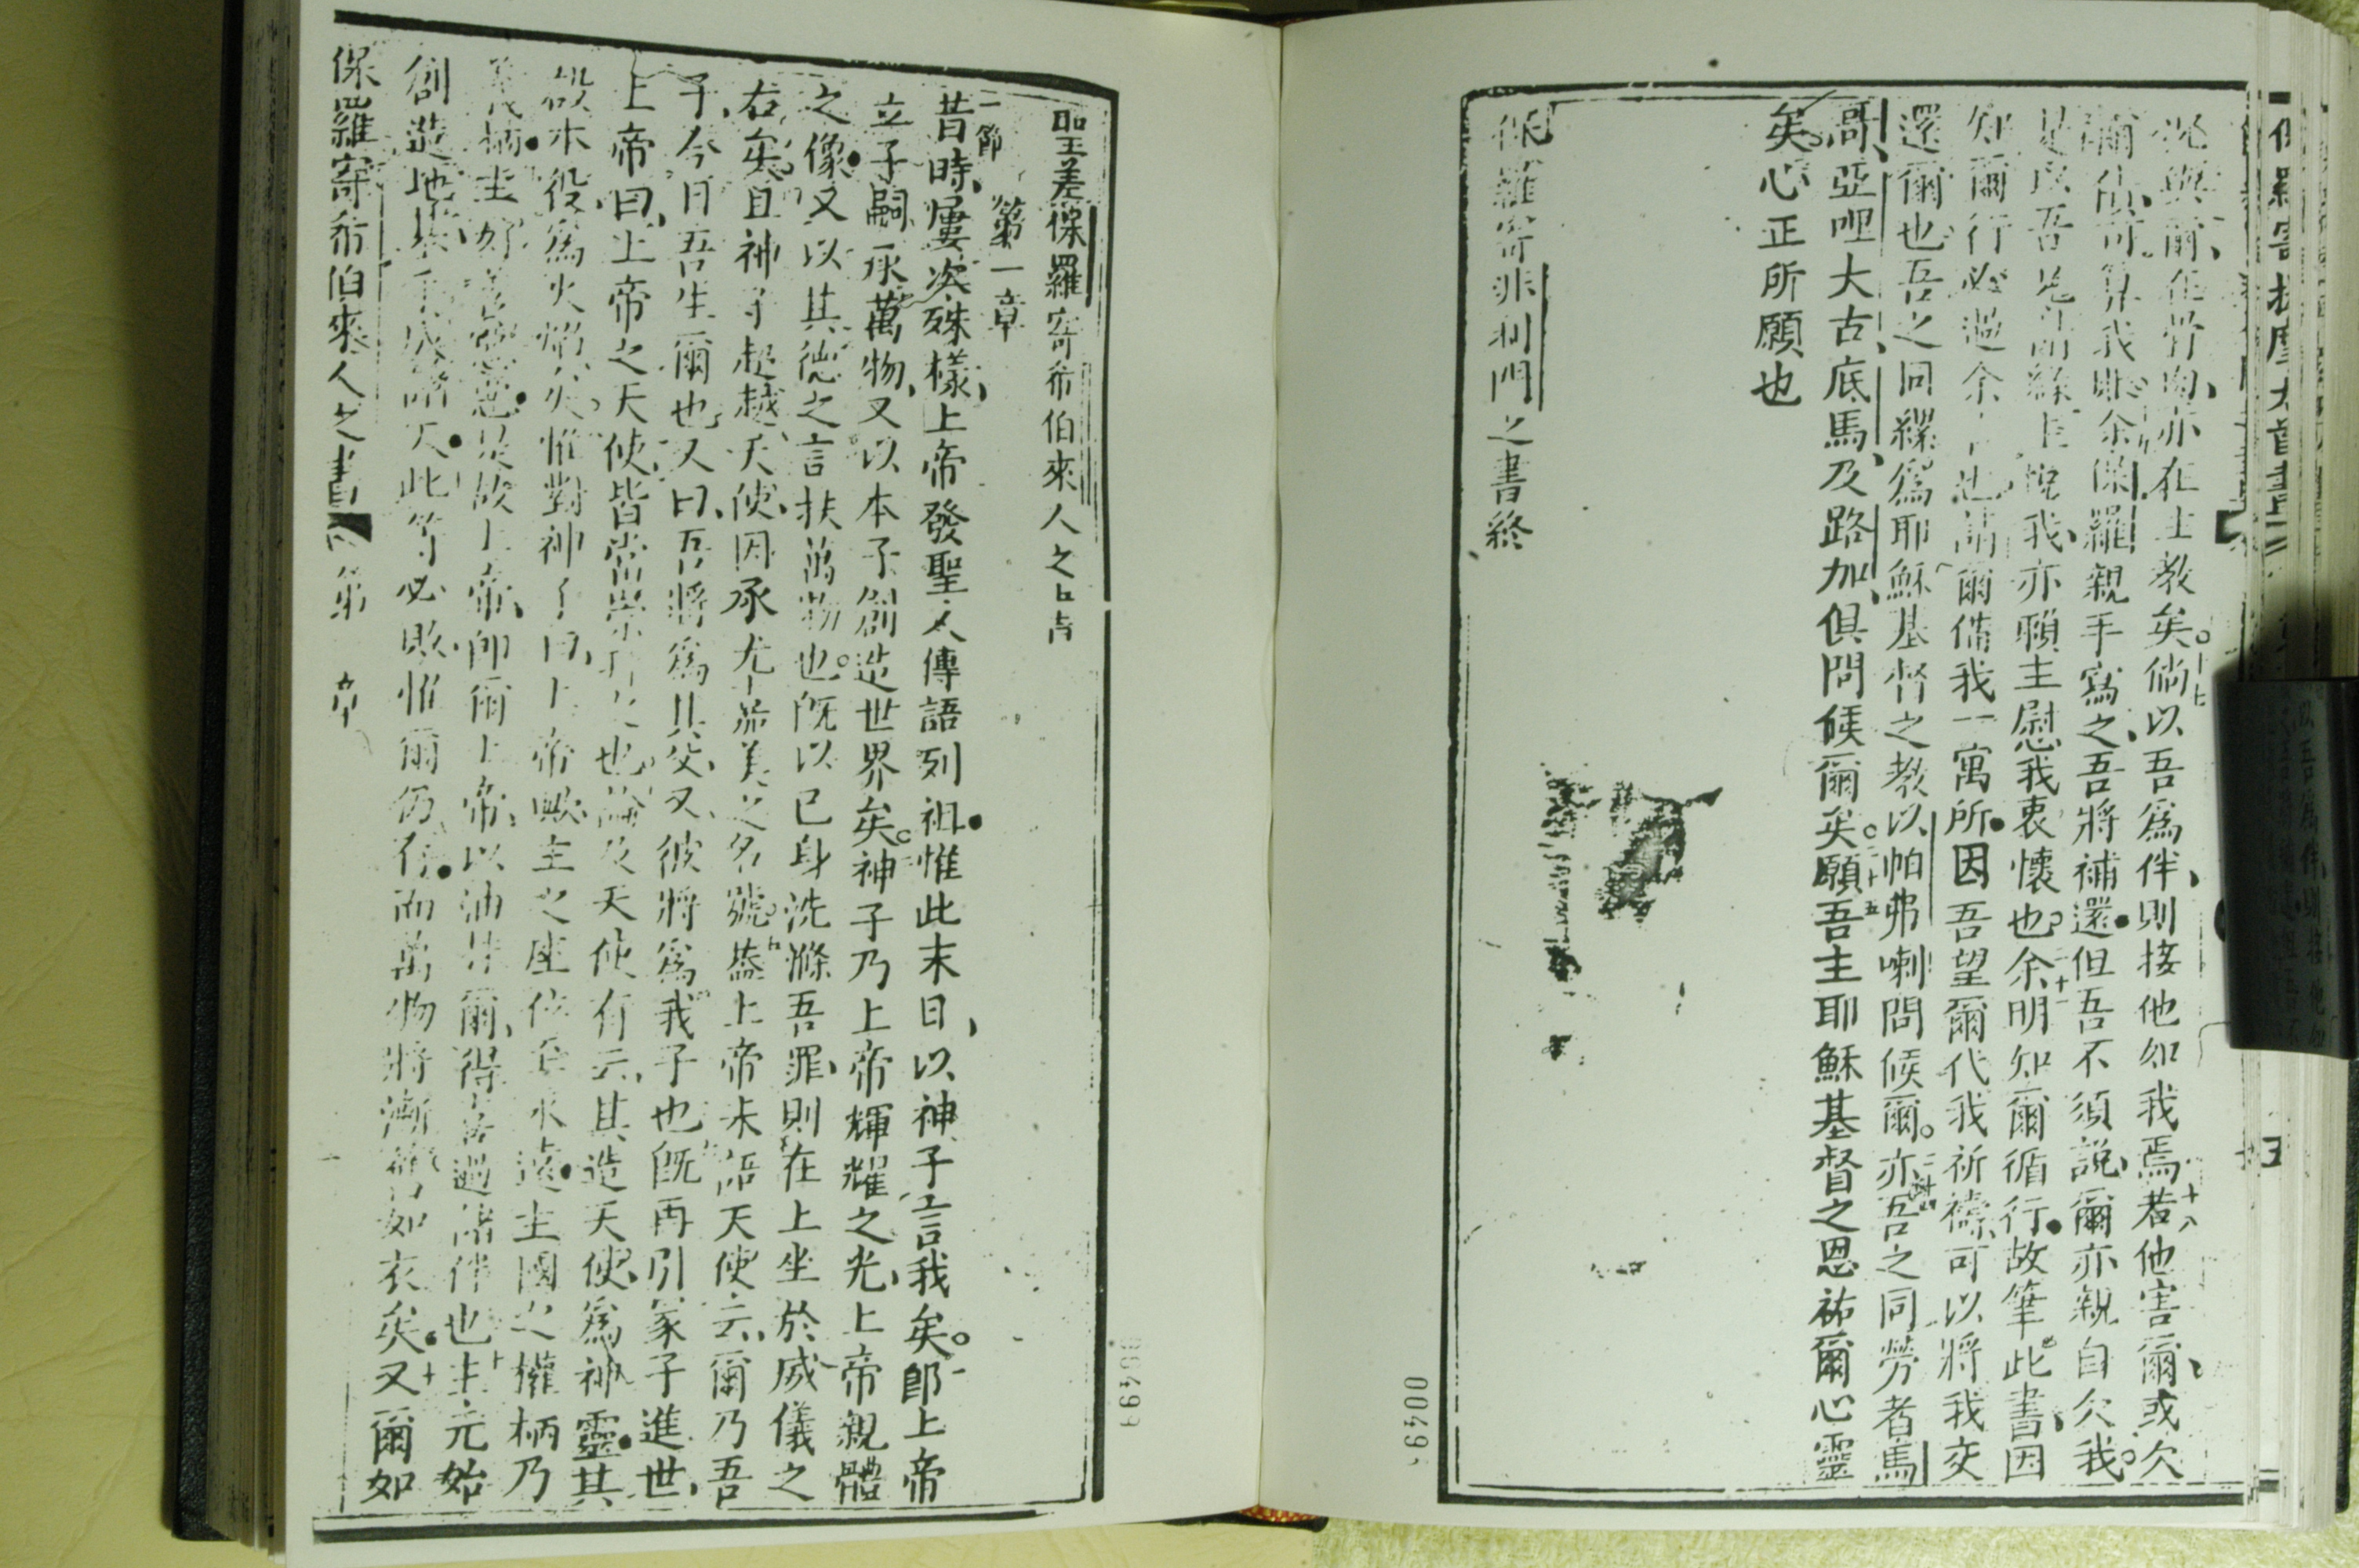 保羅寄提摩太首書
況與爾在骨肉亦在主教矣。十七倘以吾爲伴則接他如我焉十八若他害爾或欠
爾何可算我賬余保羅親手寫之吾將補還但吾不須說爾亦親自欠我。
吾 我亦賴主慰我衷懷也二十一余明知爾循行故筆此書因
知爾行必過余 也 爾備我一寓所因吾望爾代我祈禱可以將我交
還爾也吾之同纍爲耶穌基督之教以帕弗喇問候爾。亦吾之同勞者馬
哥亞哩大古底馬及路加俱問候爾矣。二十五願吾主耶穌基督之恩祐爾心靈
矣心正所願也
保羅寄非利門之書終
0049
聖差保羅寄希伯來人之書
第一章
一節昔時屢次殊樣上帝發聖人傳語列祖惟此末日以神子言我矣。即上帝
立子嗣承萬物又以本子創造世界矣。神子乃上帝輝耀之光上帝親體
之像又以其德之言扶萬物也。既以己身洗滌吾罪則在上坐於威儀之
右矣且神子超越天使因承尤 美之名號蓋上帝未語天使云爾乃吾
子今日吾生爾也又曰吾將爲其父又彼將爲我子也既再引冢子進世
上帝曰上帝之天使皆當崇拜之也論及天使有云其造天使爲神靈其
設本役爲火焰矣惟對神子曰上帝歟主之座位至永遠主國之權柄乃
義柄主好善 惡是故上帝即爾上帝以油 爾得 過諸伴也十主元始
創造地基 諸天此等必敗惟爾仍存而萬物將漸舊如衣矣十 又爾如
保羅寄希伯來人之書 第 章